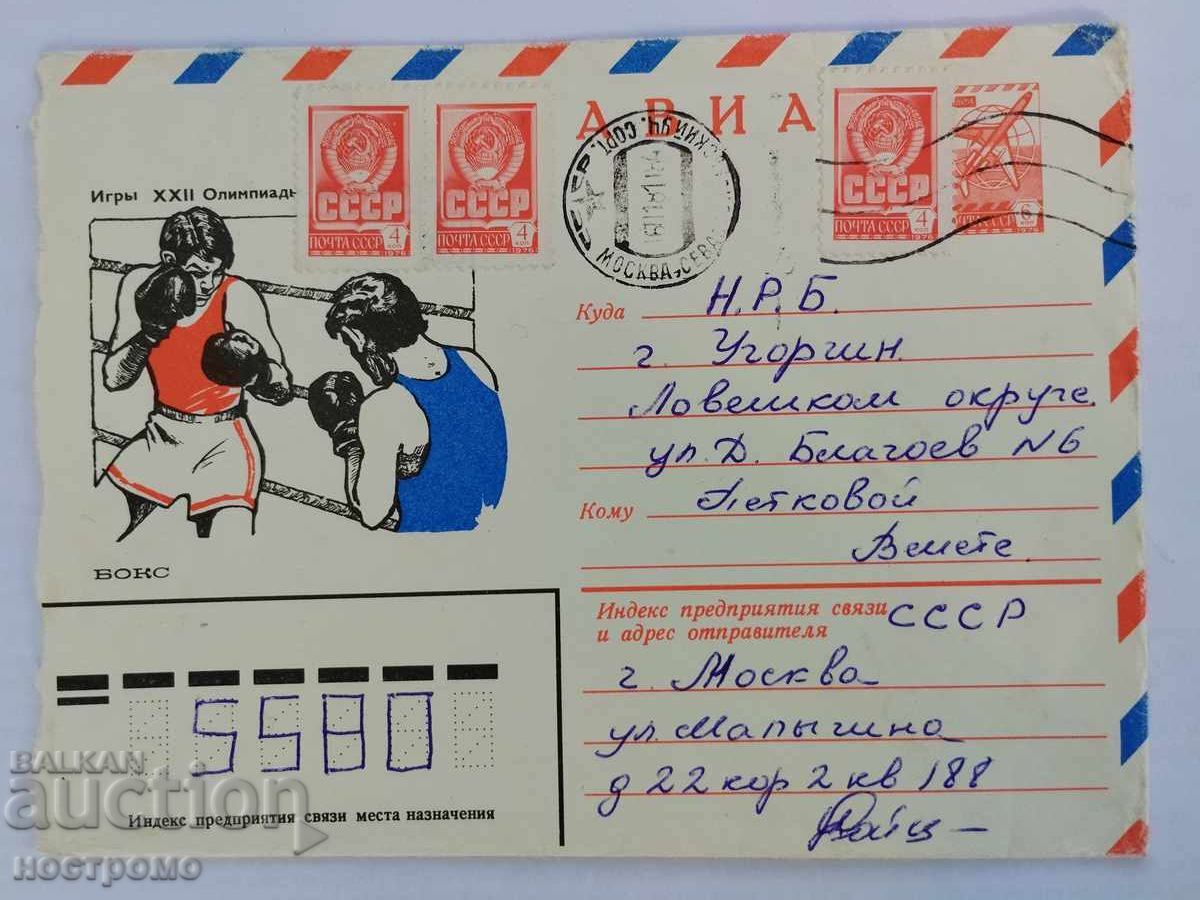 АВИА
Игры XXII Олимпиады
СССР
4 коп
ПОЧТА СССР
1976
СССР
4 коп
ПОЧТА СССР
1976
СССР
4 коп
ПОЧТА СССР
1976
6 коп
1976
СССР
МОСКВА
СОРТ.
Куда Н.Р.Б.
г. Угорчин
Ловешком округе
ул. Д. Благоев N6
Кому Петковой
БОКС
Индекс предприятия связи СССР
и адрес отправителя
г. Москва
ул. Малыгина
д 22 кор 2 кв 188
5580
Индекс предприятия связи места назначения
BALKAN
auction
ностромо